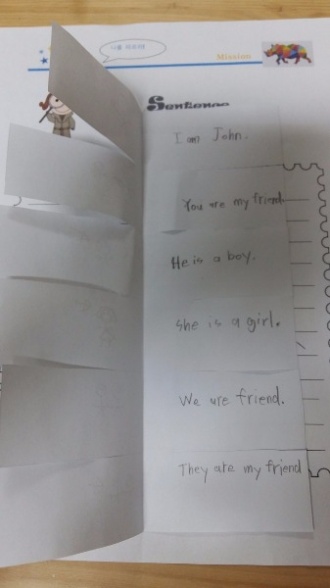 Mission
Sentence
I am John.
You are my friend
He is a boy.
She is a girl.
We are friend.
They are my friend